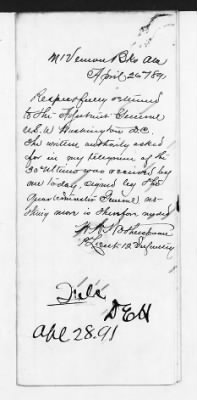 Mt Vernon Bks Ala
April 26 1891
Respectfully returned
to the Adjutant General
U.S.A Washington D.C.
The written authority asked
for in my telegram of the
30" Ultimo was received by
me today, signed by the
Quartermaster General not-
thing more is therefor needed
1" Lieut 12 Infantry
File
DEH
Apl 28.91